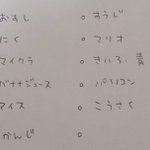 おすし
にく
マイクラ
バナナジュース
アイス
かんじ
○ すうじ
○ マリオ
○ きいろ 青
○ パソコン
○ こうさく
○